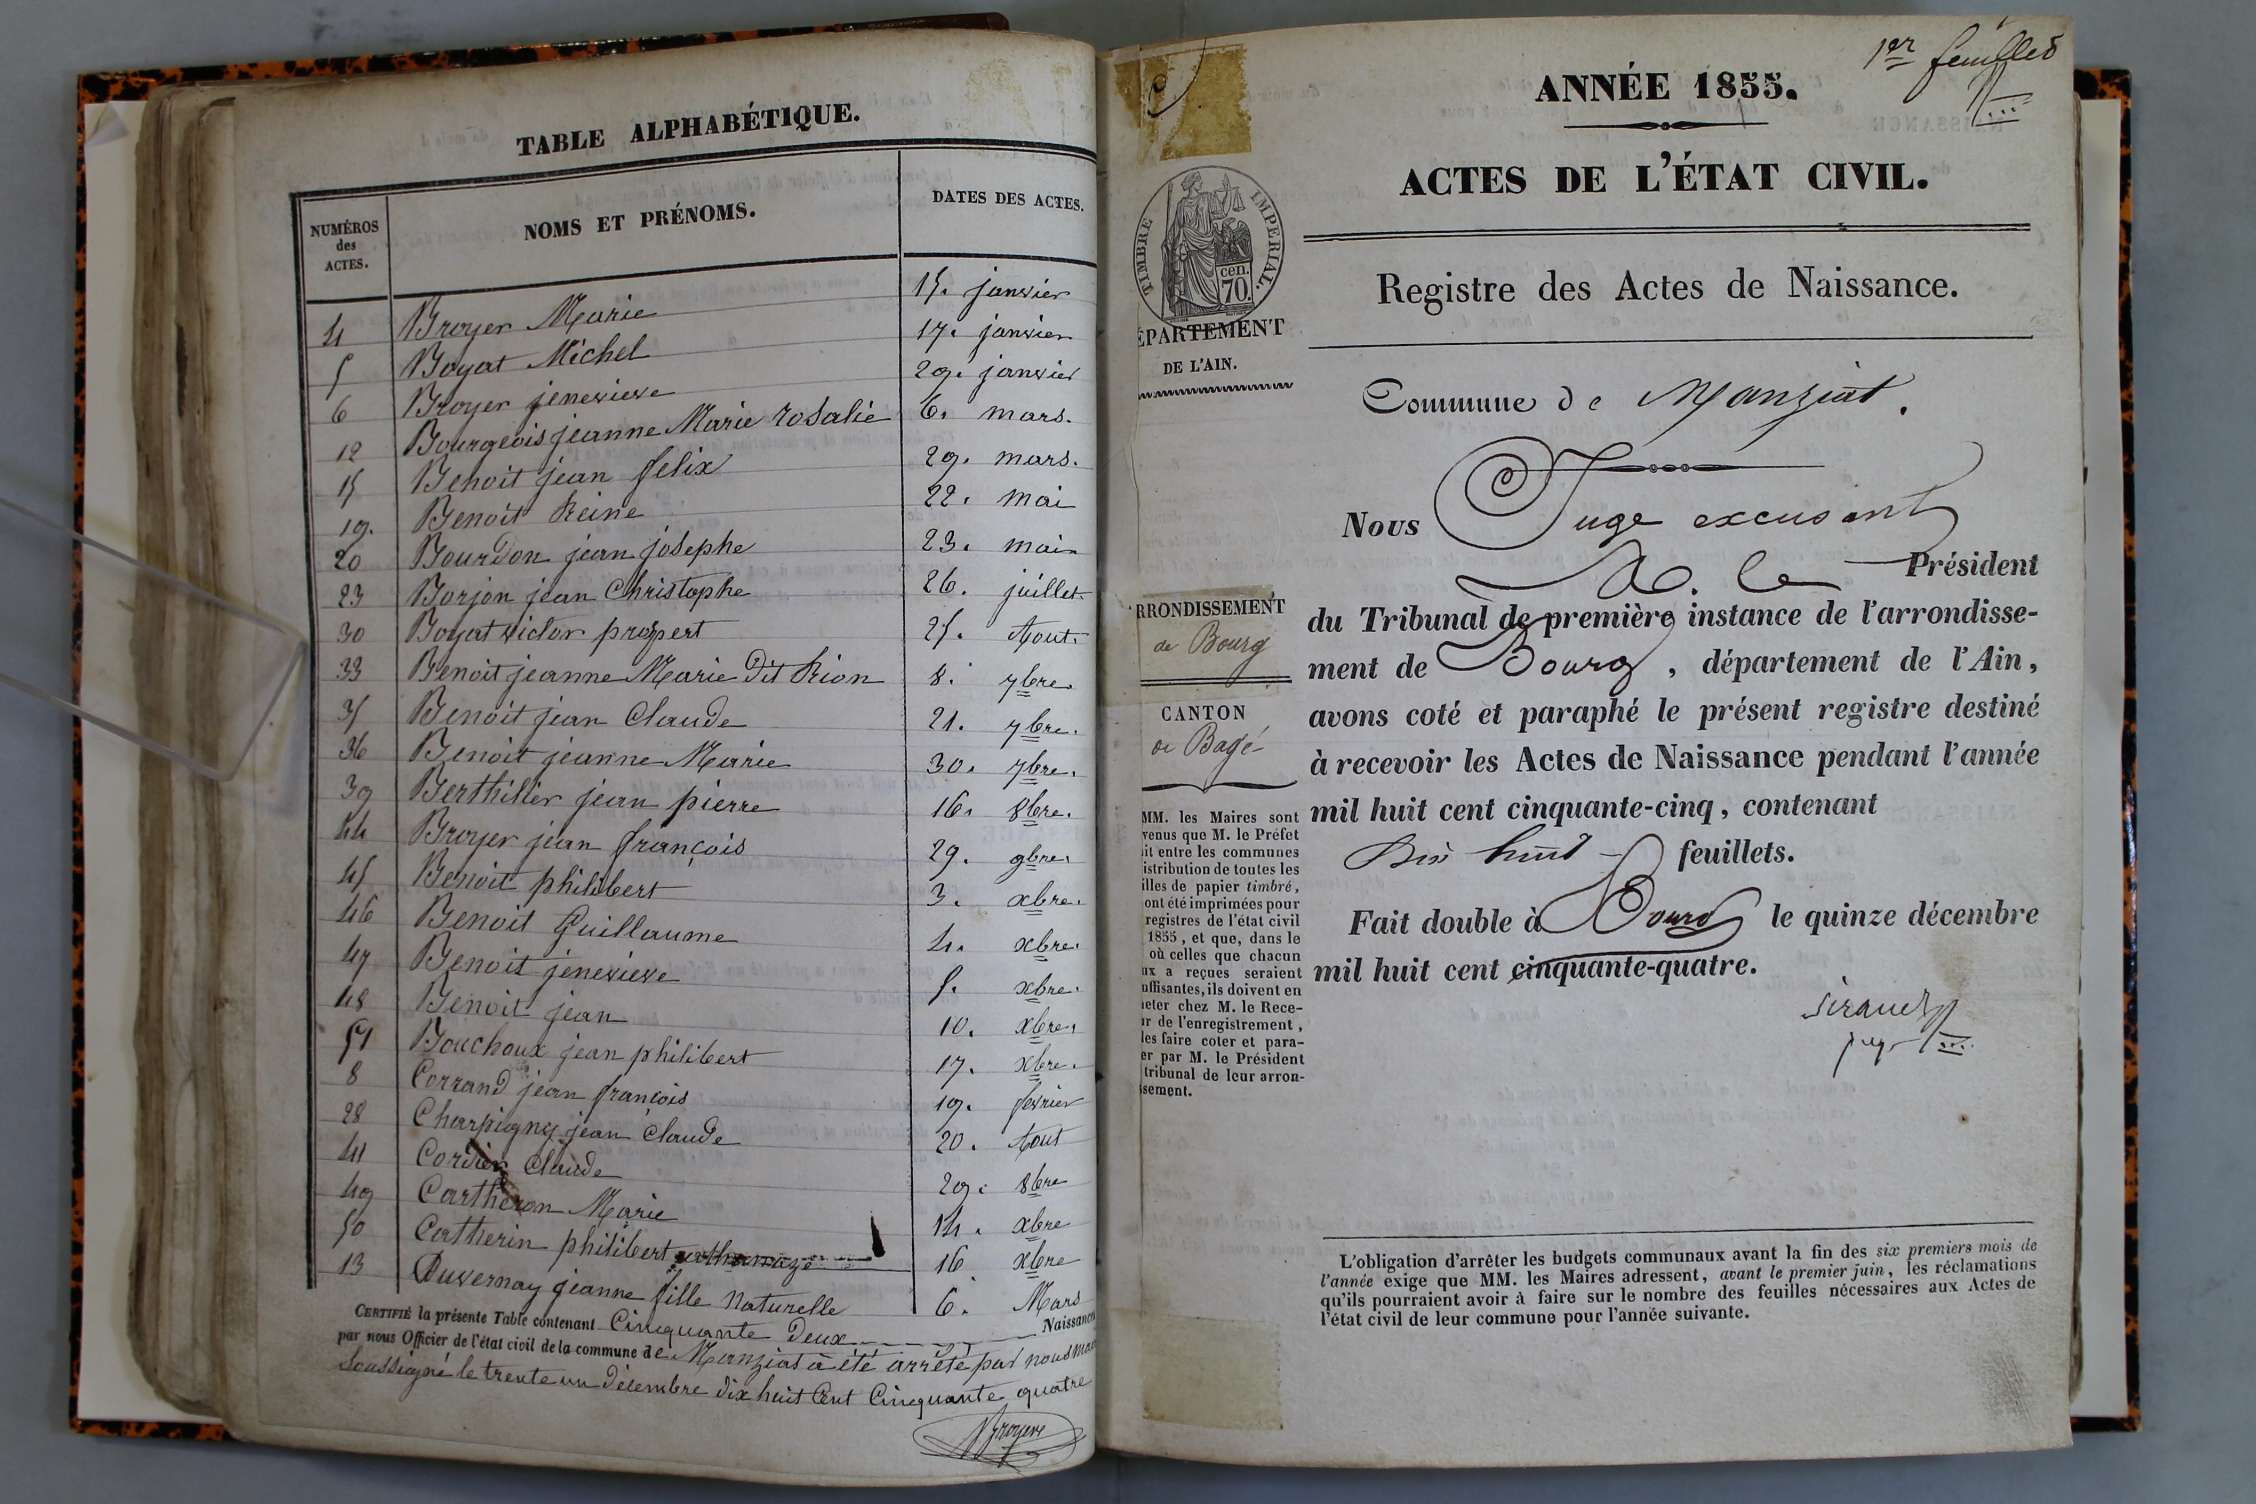 TABLE ALPHABÉTIQUE.
NUMÉROS des ACTES. NOMS ET PRÉNOMS. DATES DES ACTES.
4 Broyer Marie 15. janvier
5 Boyat Michel 17. janvier
6 Broyer jenevieve 29. janvier
12 Bourgeois jeanne Marie rosalie 6. mars.
15 Benoit jean felix 29. mars.
19. Benoit Reine 22. mai
20 Bourdon jean josephe 23. mai
23 Borjon jean Christophe 26. juillet.
30 Boyat victor prospert 25. Aout.
33 Benoit jeanne Marie dit Rion 8. 7bre
35 Benoit jean Claude 21. 7bre.
36 Benoit jeanne Marie 30. 7bre.
39 Berthilier jean pierre 16. 8bre.
44 Broyer jean françois 29. 9bre.
45 Benoit philibert 3. xbre.
46 Benoit Guillaume 4. xbre.
47 Benoit jenevieve 5. xbre.
48 Benoit jean 10. xbre.
51 Bouchoux jean philibert 17. xbre.
8 Corrand jean françois 19. fevrier
28 Charpigny jean Claude 20. Aout
41 Cordier Claude 29. 8bre
49 Cartheron Marie 14. xbre
50 Catherin philibert 16 xbre
13 Duvernay jeanne fille naturelle 6. Mars
CERTIFIÉ la présente Table contenant Cinquante deux Naissances
par nous Officier de l'état civil de la commune de Manziat à été arrêté par nous maire
Soussigné le trente un décembre dix huit Cent Cinquante quatre
Broyer
1er feuillet
ANNÉE 1855.
ACTES DE L'ÉTAT CIVIL.
TIMBRE IMPERIAL.
cen.
70.
Registre des Actes de Naissance.
ÉPARTEMENT
DE L'AIN.
Commune de Manziat.
Nous Juge excusant
M. le Président
RRONDISSEMENT
de Bourg
CANTON
de Bagé
du Tribunal de première instance de l'arrondisse-
ment de Bourg, département de l'Ain,
avons coté et paraphé le présent registre destiné
à recevoir les Actes de Naissance pendant l'année
mil huit cent cinquante-cinq, contenant
dix huit feuillets.
Fait double à Bourg le quinze décembre
mil huit cent cinquante-quatre.
MM. les Maires sont
venus que M. le Préfet
it entre les communes
istribution de toutes les
illes de papier timbré,
ont été imprimées pour
registres de l'état civil
1855, et que, dans le
où celles que chacun
ux a reçues seraient
uffisantes, ils doivent en
heter chez M. le Rece-
ur de l'enregistrement,
les faire coter et para-
er par M. le Président
tribunal de leur arron-
ssement.
L'obligation d'arrêter les budgets communaux avant la fin des six premiers mois de
l'année exige que MM. les Maires adressent, avant le premier juin, les réclamations
qu'ils pourraient avoir à faire sur le nombre des feuilles nécessaires aux Actes de
l'état civil de leur commune pour l'année suivante.